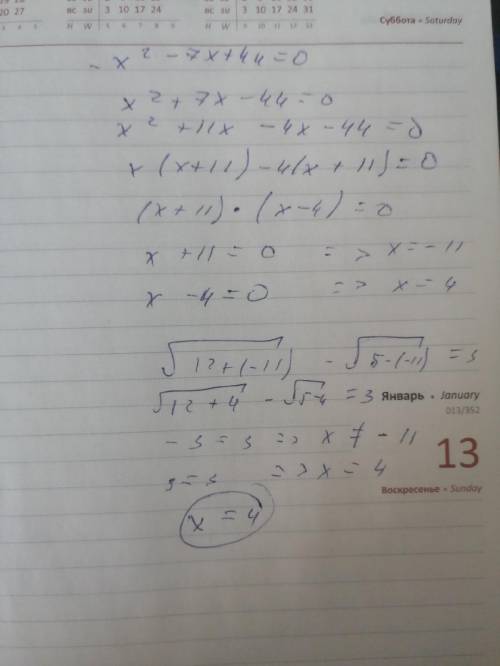 20 27
вс su 3 10 17 24
н w 5 6 7 8 9
вс su 3 10 17 24 31
н w 9 10 11 12 13
Суббота • Saturday
- x² - 7x + 44 = 0
x² + 7x - 44 = 0
x² + 11x - 4x - 44 = 0
x (x + 11) - 4(x + 11) = 0
(x + 11) • (x - 4) = 0
x + 11 = 0 => x = -11
x - 4 = 0 => x = 4
√12 + (-11) - √5 - (-11) = 3
√12 + 4 - √5-4 = 3
Январь • January
013/352
- 3 = 3 => x ≠ - 11
13
3 = 3 => x = 4
Воскресенье • Sunday
x = 4